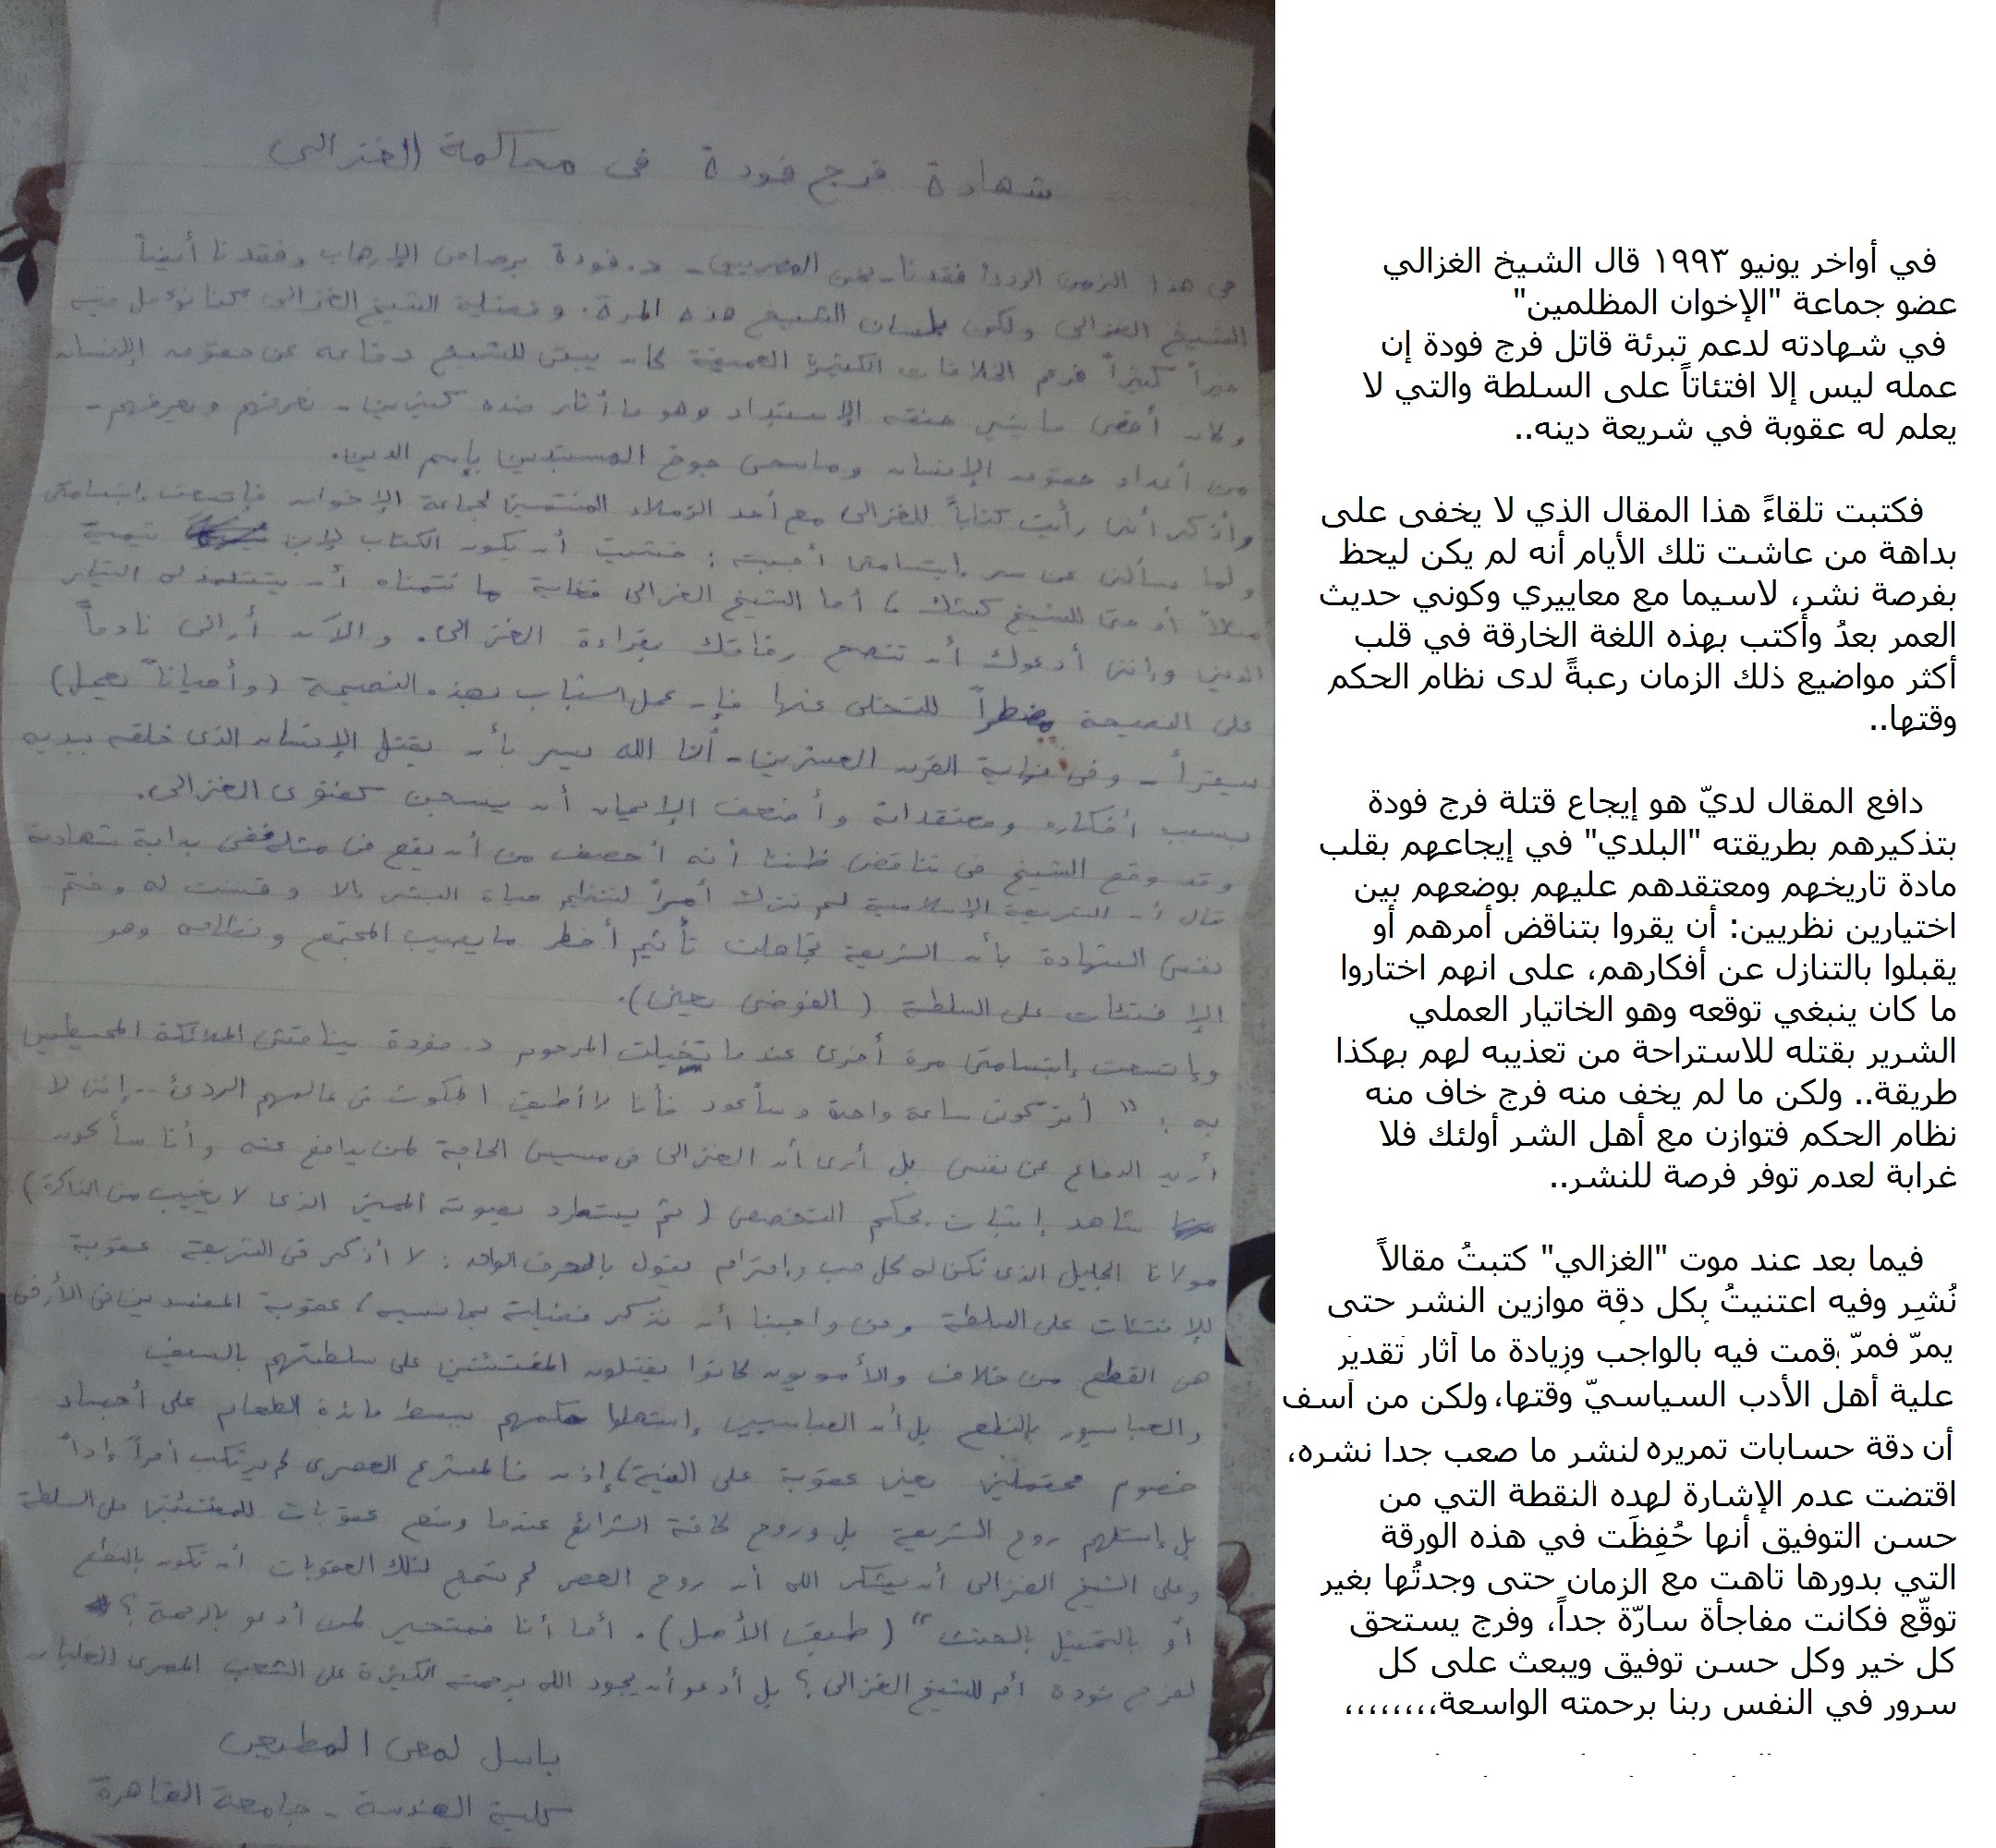 شهادة فرج فودة فى محاكمة الغزالى
فى هذا الزمن الردئ فقدنا - نحن المصريين - د. فودة برصاص الإرهاب وفقدنا أيضاً
الشيخ الغزالى ولكن بلسان الشيخ هذه المرة. وفضيلة الشيخ الغزالى كنا نؤمل فيه
خيراً كثيراً فرغم الخلافات الكثيرة العميقة كان يبقى للشيخ دفاعه عن حقوق الإنسان
وكان أقصى ما يثير حنقه الإستبداد وهو ما أثار ضده كثيرين - نعرفهم ويعرفهم -
من أعداء حقوق الإنسان وماسحى جوخ المستبدين بإسم الدين.
وأذكر أننى رأيت كتاباً للغزالى مع أحد الزملاء المنتمين لجماعة الإخوان فإتسعت إبتسامتى
ولما سألنى عن سر إبتسامتى أجبته : خشيت أن يكون الكتاب لإبن تيمية
مثلاً أو حتى للشيخ كشك ، أما الشيخ الغزالى فغاية ما نتمناه أن يتتلمذ له التيار
الدينى وإننى أدعوك أن تنصح رفاقك بقراءة الغزالى. والآن أرانى نادماً
على النصيحة مضطراً للتخلى عنها فإن عمل الشباب بهذه النصيحة (وأحياناً يعمل)
سيقرأ - وفى نهاية القرن العشرين - أن الله يسر بأن يقتل الإنسان الذى خلقه بيديه
بسبب أفكاره ومعتقداته وأضعف الإيمان أن يسجن كفتوى الغزالى.
وقد وقع الشيخ فى تناقض ظننا أنه أحصف من أن يقع فى مثله ففى بداية شهادته
قال أن الشريعة الإسلامية لم تترك أمراً لتنظيم حياة البشر إلا وقننت له وختم
نفس الشهادة بأن الشريعة تجاهلت تأثيم أخطر ما يصيب المجتمع ونظامه وهو
الإفتئات على السلطة (الفوضى يعنى).
وإتسعت إبتسامتى مرة أخرى عندما تخيلت المرحوم د. فودة يناقش الملائكة المحيطين
به : " أتركونى ساعة واحدة وسأعود فأنا لا أطيق المكوث فى عالمهم الردئ .. إننى لا
أريد الدفاع عن نفسى بل أرى أن الغزالى فى مسيس الحاجة لمن يدافع عنه وأنا سأكون
شاهد إثبات بحكم التخصص (ثم يستطرد بصوته المميز الذى لا يغيب من الذاكرة)
مولانا الجليل الذى نكن له كل حب وإحترام يقول بالحرف الواحد : لا أذكر فى الشريعة عقوبة
للإفتئات على السلطة ومن واجبنا أن نذكر فضيلته بما نسيه ، عقوبة المفسدين فى الأرض
هى القطع من خلاف والأمويون كانوا يقتلون المفتئتين على سلطتهم بالسيف
والعباسيون بالنطع بل أن العباسيين إستهلوا حكمهم ببسط مائدة الطعام على أجساد
خصوم محتملين يعنى عقوبة على النية ، إذن فالمشرع العصرى لم يرتكب أمراً إداً
بل إستلهم روح الشريعة بل وروح كافة الشرائع عندما وضع عقوبات للمفتئتين على السلطة
وعلى الشيخ الغزالى أن يشكر الله أن روح العصر لم تسمح لتلك العقوبات أن تكون بالنطع
أو بالتمثيل بالجثث " (طبق الأصل). أما أنا فمتحير لمن أدعو بالرحمة ؟
لفرج فودة أم للشيخ الغزالى ؟ بل أدعو أن يجود الله برحمته الكثيرة على الشعب المصرى الغلبان
باسل لمعى المطيعى
كلية الهندسة - جامعة القاهرة
في أواخر يونيو ١٩٩٣ قال الشيخ الغزالي
عضو جماعة "الإخوان المظلمين"
في شهادته لدعم تبرئة قاتل فرج فودة إن
عمله ليس إلا افتئاتاً على السلطة والتي لا
يعلم له عقوبة في شريعة دينه..
فكتبت تلقاءً هذا المقال الذي لا يخفى على
بداهة من عاشت تلك الأيام أنه لم يكن ليحظ
بفرصة نشر، لاسيما مع معاييري وكوني حديث
العمر بعدُ وأكتب بهذه اللغة الخارقة في قلب
أكثر مواضيع ذلك الزمان رعبةً لدى نظام الحكم
وقتها..
دافع المقال لديّ هو إيجاع قتلة فرج فودة
بتذكيرهم بطريقته "البلدي" في إيجاعهم بقلب
مادة تاريخهم ومعتقدهم عليهم بوضعهم بين
اختيارين نظريين: أن يقروا بتناقض أمرهم أو
يقبلوا بالتنازل عن أفكارهم، على انهم اختاروا
ما كان ينبغي توقعه وهو الخاتيار العملي
الشرير بقتله للاستراحة من تعذيبه لهم بهكذا
طريقة.. ولكن ما لم يخف منه فرج خاف منه
نظام الحكم فتوازن مع أهل الشر أولئك فلا
غرابة لعدم توفر فرصة للنشر..
فيما بعد عند موت "الغزالي" كتبتُ مقالاً
نُشِر وفيه اعتنيتُ بكل دقة موازين النشر حتى
يمرّ فمرّ وقمت فيه بالواجب وزيادة ما أثار تقدير
علية أهل الأدب السياسيّ وقتها، ولكن من أسف
أن دقة حسابات تمريره لنشر ما صعب جدا نشره،
اقتضت عدم الإشارة لهده النقطة التي من
حسن التوفيق أنها حُفِظَت في هذه الورقة
التي بدورها تاهت مع الزمان حتى وجدتُها بغير
توقّع فكانت مفاجأة سارّة جداً، وفرج يستحق
كل خير وكل حسن توفيق ويبعث على كل
سرور في النفس ربنا برحمته الواسعة،،،،،،،،